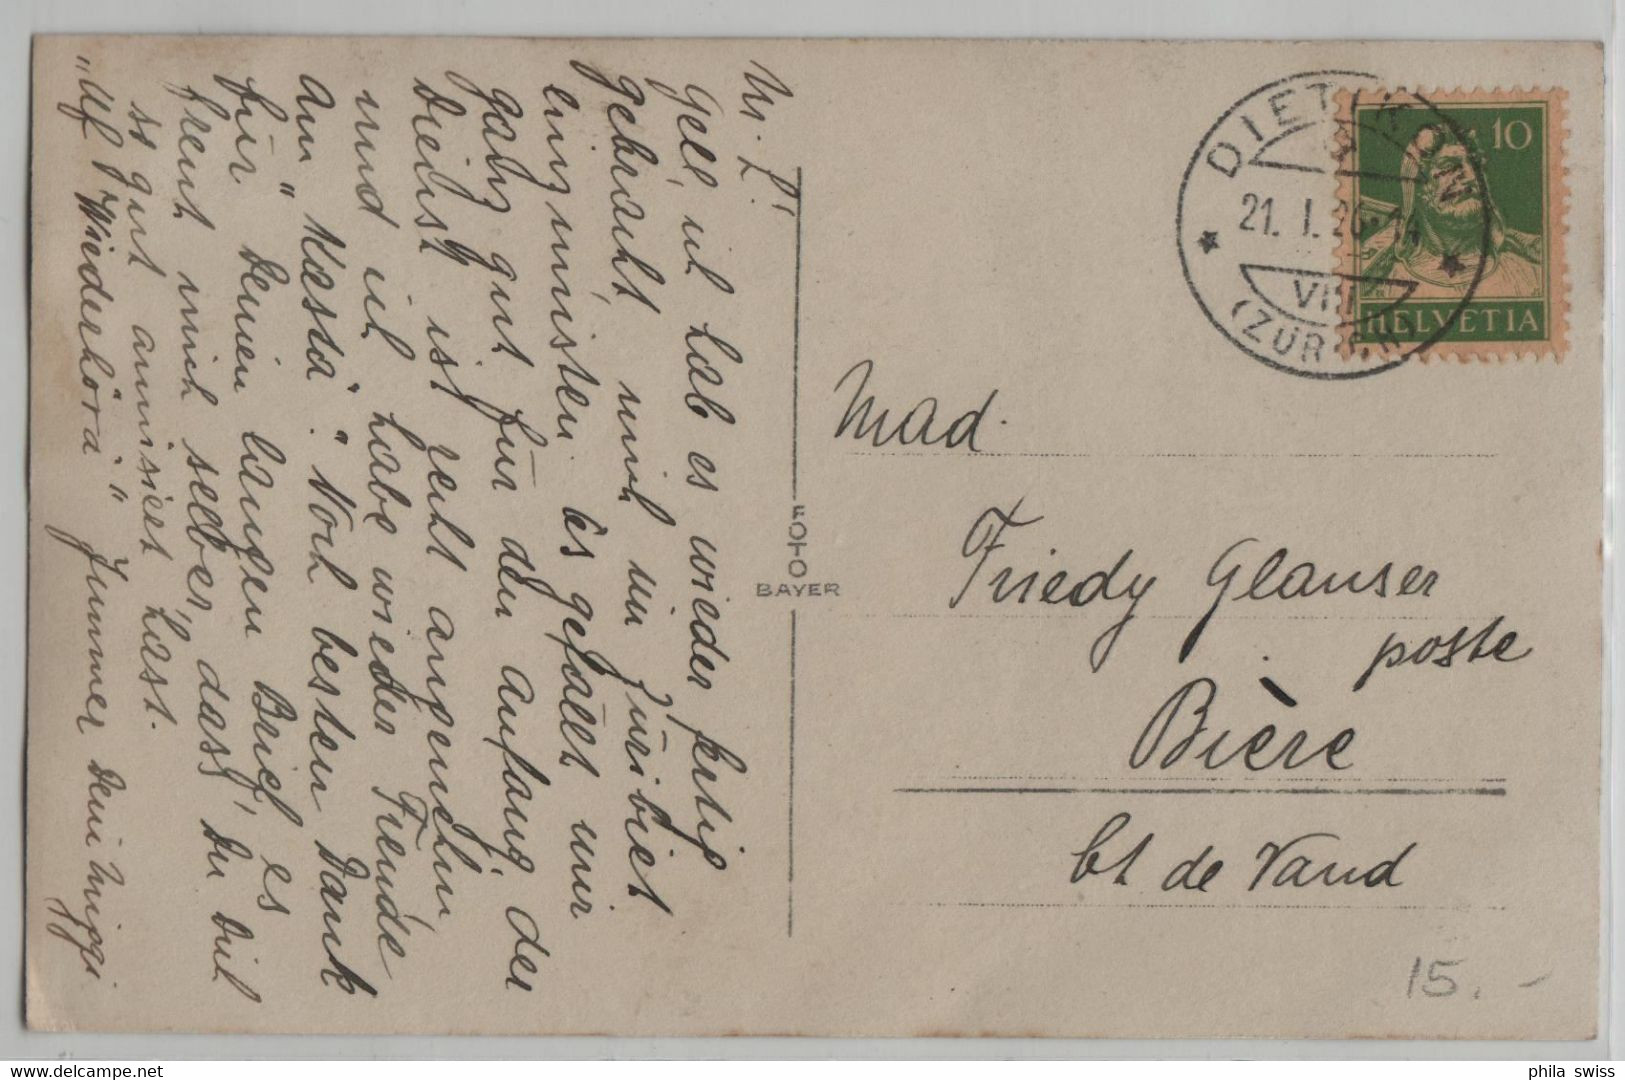 M. L.!
Gell, ich hab es wieder fertig
gebracht, mich im Züribiet
einzunisten. Es gefällt mir
ganz gut für den Anfang, der
Dienst ist recht angenehm
und ich habe wieder Freude
am "Kässä". Noch besten Dank
für Deinen langen Brief, es
freut mich selber, dass Du Dich
so gut amüsiert hast.
"Uf Wiederhöra" Immer Dein Miggi
FOTO
BAYER
DIETIKON
21. I. 26-14
VIII
(ZÜRICH)
10
HELVETIA
Mad.
Friedy Glauser
poste
Bière
Ct de Vaud
15.-
phila swiss